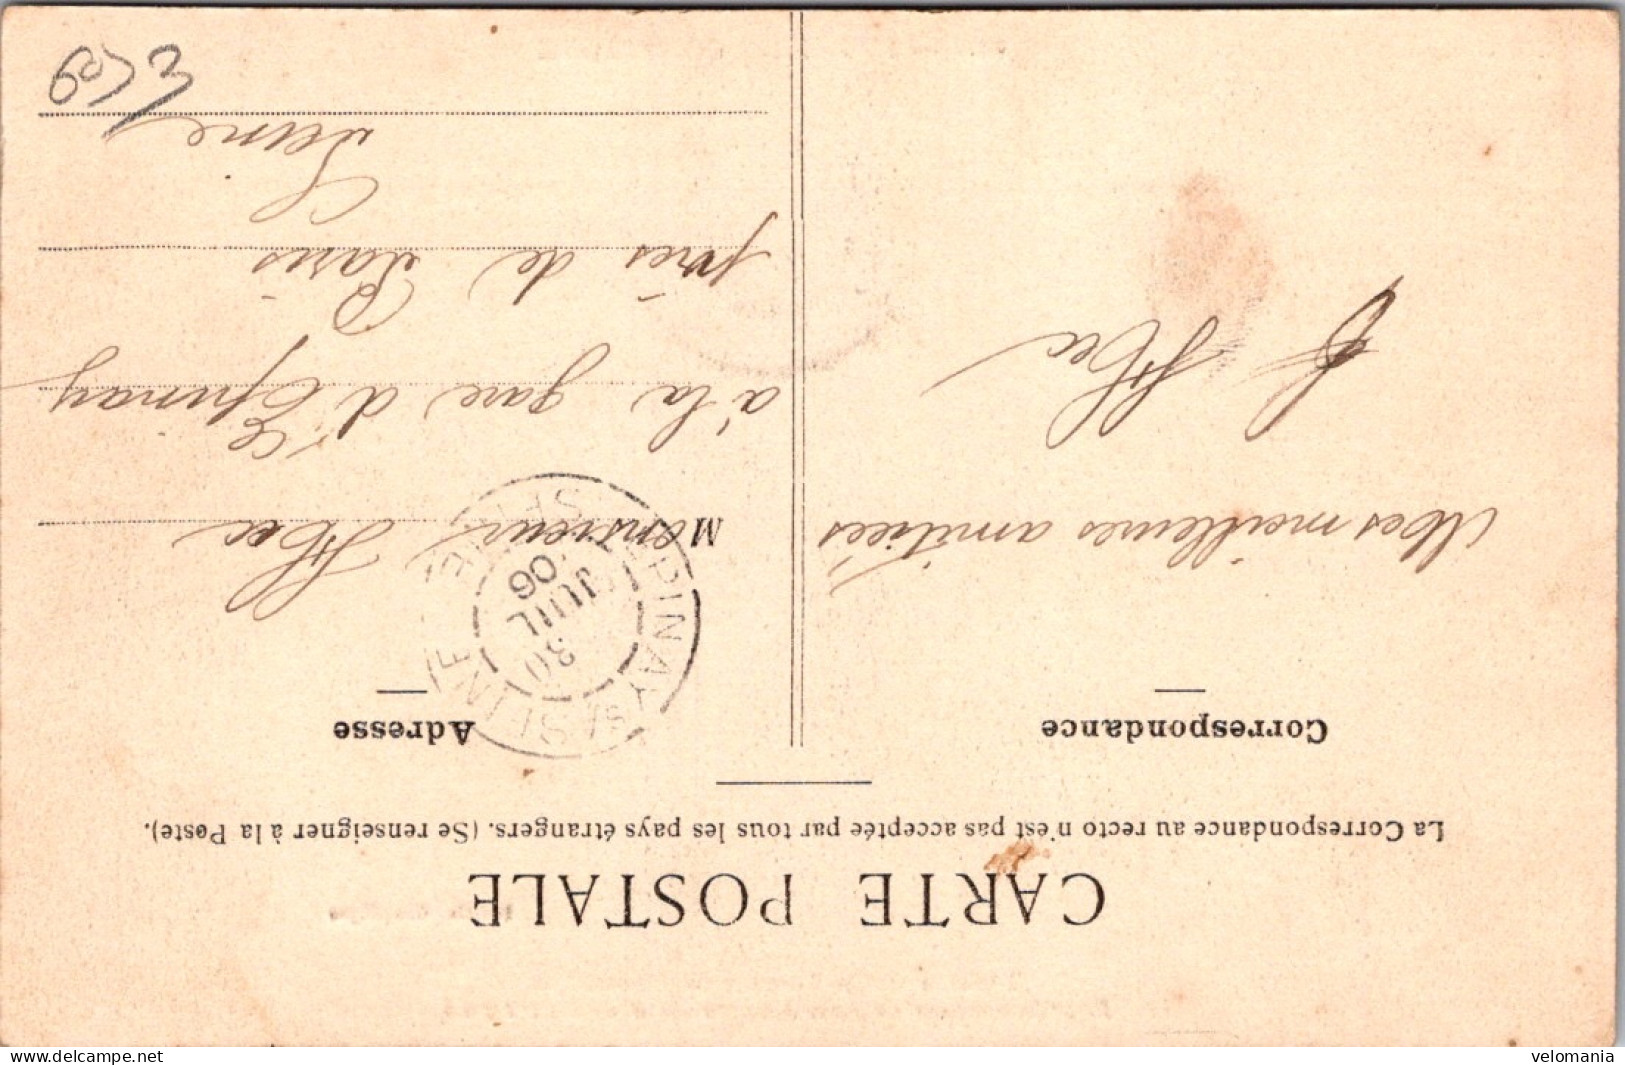 CARTE POSTALE
La Correspondance au recto n'est pas acceptée par tous les pays étrangers. (Se renseigner à la Poste).
Correspondance
Adresse
Mes meilleures amitiés
EPINAY S/ SEINE
30
JUIL
06
SEINE
Monsieur
à la gare d'Epinay
près de Paris
Seine
delcampe.net
velomania